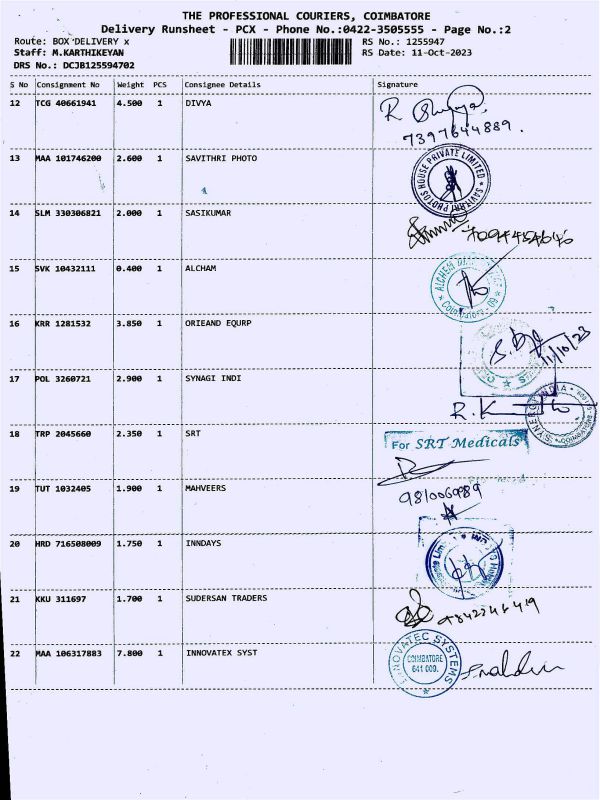 THE PROFESSIONAL COURIERS, COIMBATORE
Delivery Runsheet - PCX - Phone No.:0422-3505555 - Page No.:2
Route: BOX DELIVERY x RS No.: 1255947
Staff: M.KARTHIKEYAN RS Date: 11-Oct-2023
DRS No.: DCJB125594702
S No Consignment No Weight PCS Consignee Details Signature
12 TCG 40661941 4.500 1 DIVYA
7397644889.
13 MAA 101746200 2.600 1 SAVITHRI PHOTO
SAVITHRI PHOTOS HOUSE PRIVATE LIMITED
14 SLM 330306821 2.000 1 SASIKUMAR
15 SVK 10432111 0.400 1 ALCHAM
ALCHEM
Coimbatore - 09
16 KRR 1281532 3.850 1 ORIEAND EQURP
11/10/23
17 POL 3260721 2.900 1 SYNAGI INDI
R.K
SYNERGY INDIA
18 TRP 2045660 2.350 1 SRT
For SRT Medicals
19 TUT 1032405 1.900 1 MAHVEERS
20 HRD 716508009 1.750 1 INNDAYS
21 KKU 311697 1.700 1 SUDERSAN TRADERS
9842246419
22 MAA 106317883 7.800 1 INNOVATEX SYST
INNOVATEC SYSTEMS
COIMBATORE
641 009.